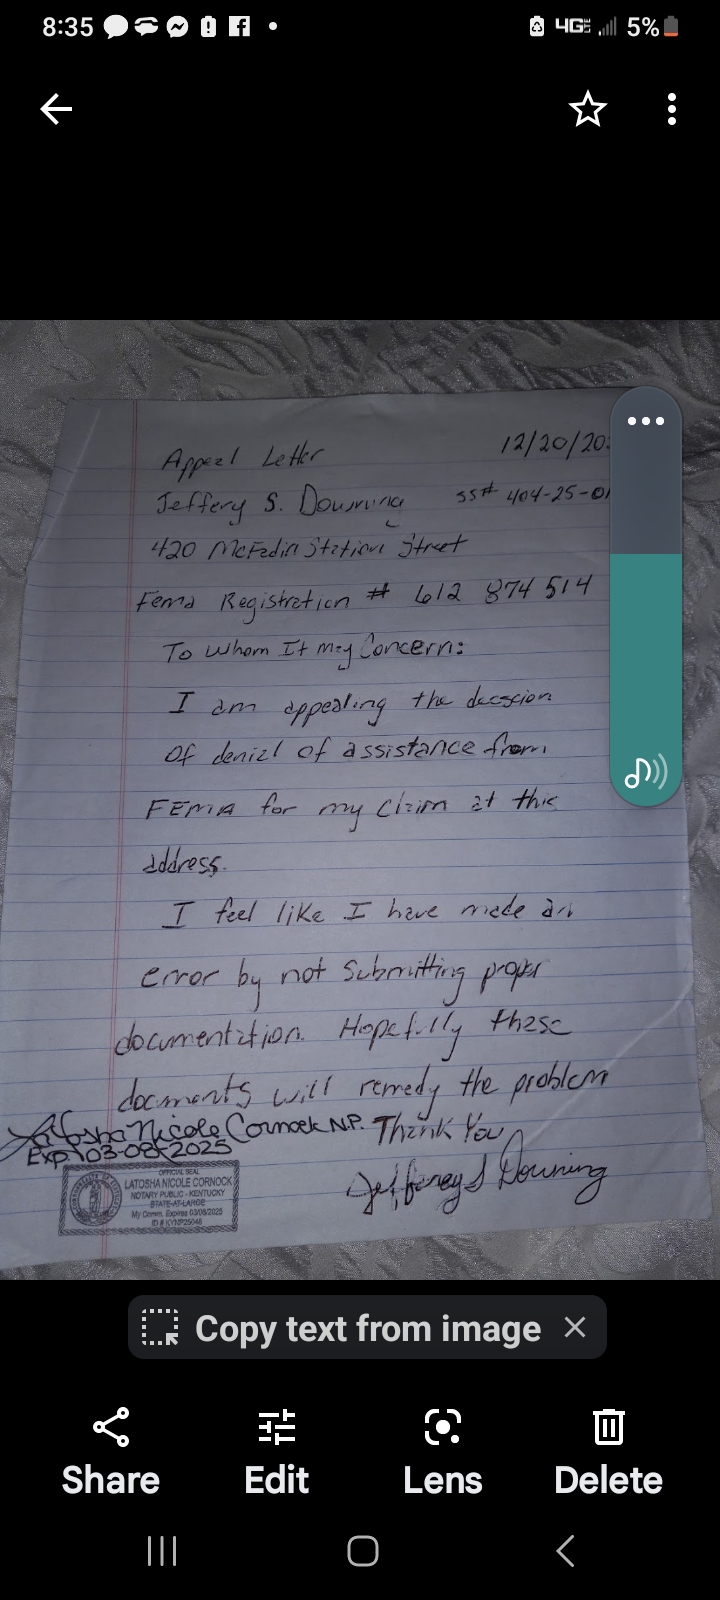 8:35
4G 5%
Appeal Letter 12/20/20
Jeffery S. Downing SS# 404-25-0
420 McFadin Station Street
Fema Registration # 612 874 514
To Whom It May Concern:
I am appealing the decscion
of denial of assistance from
FEMA for my claim at this
address.
I feel like I have made an
error by not submitting proper
documentation. Hopefully these
documents will remedy the problem
Latosha Nicole Cornock N.P. Thank You
Exp 03-08-2025
Jeffery S Downing
OFFICIAL SEAL
LATOSHA NICOLE CORNOCK
NOTARY PUBLIC - KENTUCKY
STATE-AT-LARGE
My Comm. Expires 03/08/2025
ID # KYNP25048
Copy text from image
Share Edit Lens Delete